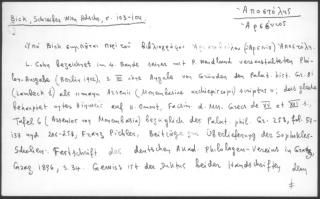 Bick, Schreiber Wien. Hdschr., r. 103-104
Ἀποστόλης
Ἀρσένιος
Ὑπὸ Bick σημειοῦται περὶ τοῦ Βιβλιογράφου Ἀρσενίου (Ἀρσένιο) Ἀποστόλη.
L. Cohn bezeichnet im 6. Bande seiner mit P. Wendland veranstalteten Philo-
Ausgabe (Berlin 1915), S. III ohne Angabe von Gründen den Palat. hist. Gr. 81
(Lambeck) als "manu Arsenii (Monembasiae archiepiscopi) scriptus"; das gleiche
behauptet unter Hinweis auf H. Omont, Facsim. d. Mss. Grecs de XV et XVI s.
Tafel 6 (Arsenius von Monembasia) bezüglich des Palat. phil. Gr. 253, fol. 57-
137 und 205-258, Franz Pichler, Beiträge zur Überlieferung des Sophokles-
Scholien. Festschrift des deutschen Akad. Philologen-Vereins in Graz,
Graz 1896, S. 34. Gewiss ist der Duktus beider Handschriften dem